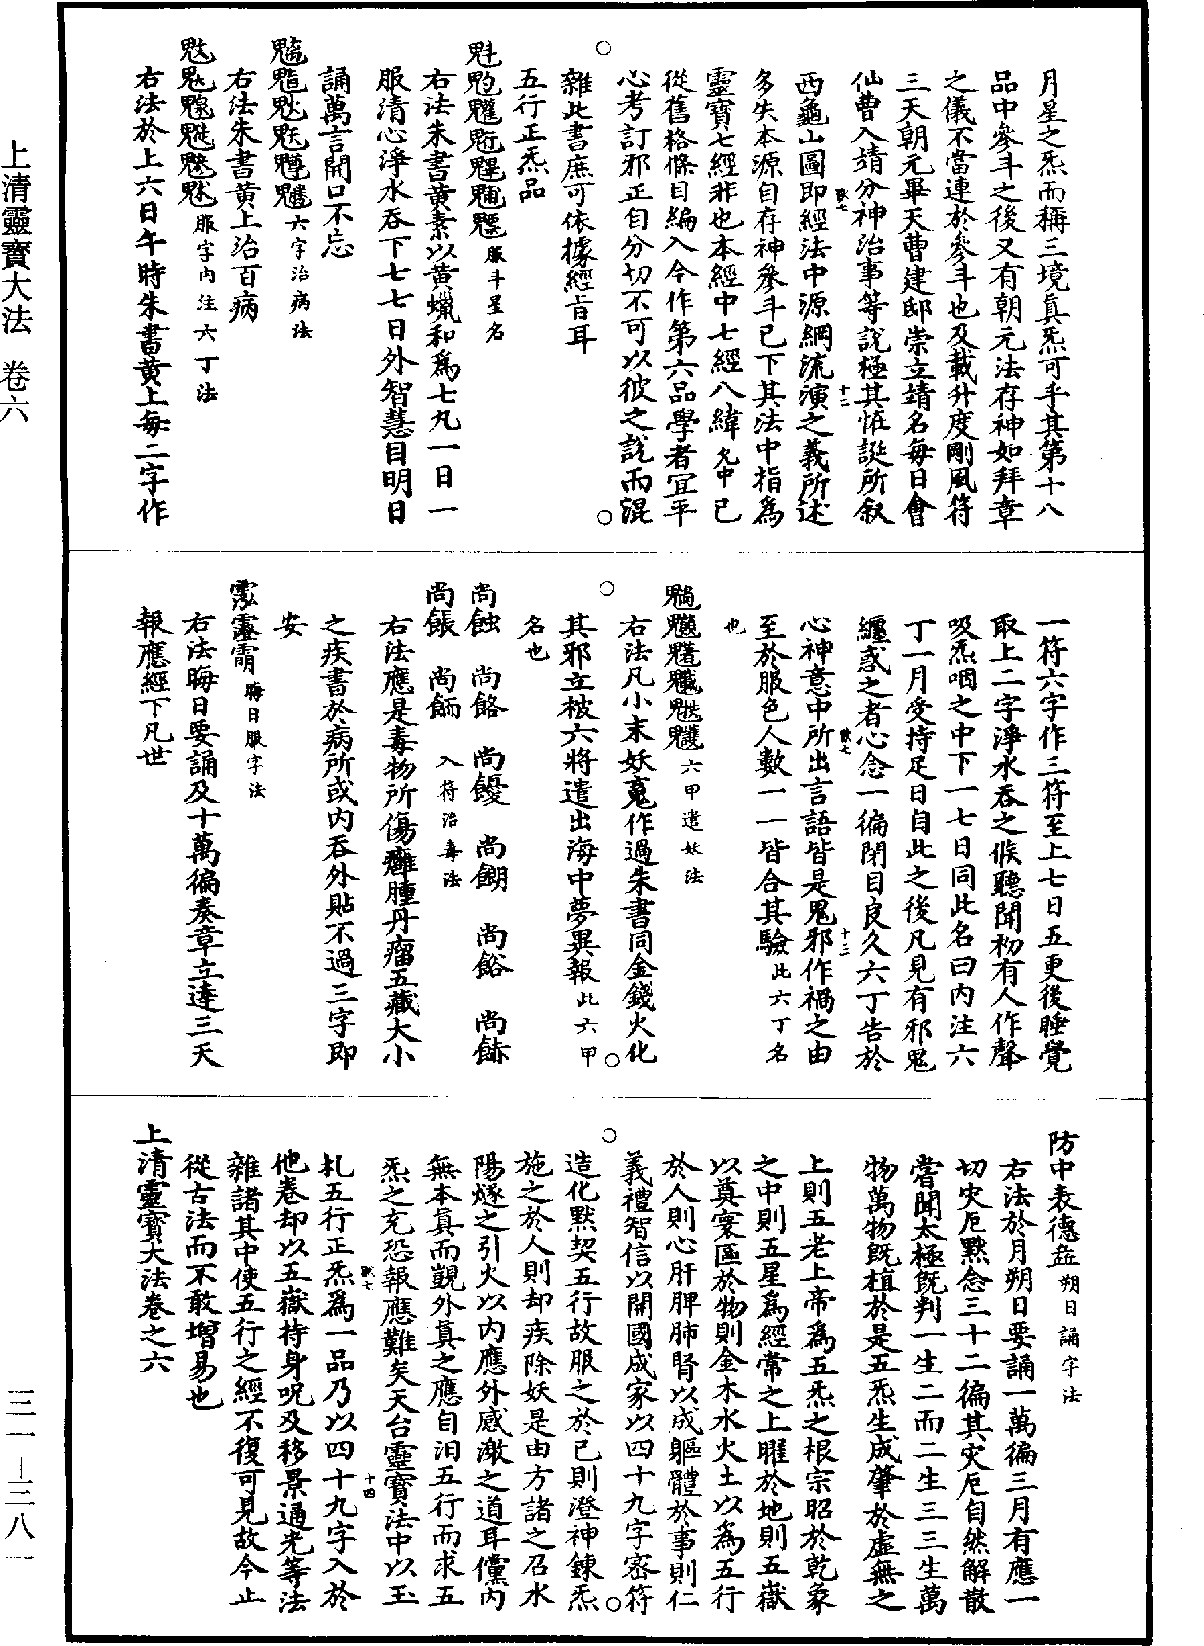 上清靈寶大法 卷六
三一—三八一
月星之炁而稱三境真炁可乎其第十八
品中參斗之後又有朝元法存神如拜章
之儀不當連於參斗也及載升度剛風符
三天朝元畢天曹建邸崇立靖名每日會
仙曹入靖分神治事等說極其恠誕所叙
西龜山圖即經法中源綱流演之義所述
多失本源自存神參斗已下其法中指為
靈寶七經非也本經中七經八緯允中已
從舊格條目編入今作第六品學者宜平
心考訂邪正自分切不可以彼之說而混
雜此書庶可依據經旨耳
五行正炁品
服斗星名
右法朱書黃素以黃蠟和為七丸一日一
服清心淨水吞下七七日外智慧目明日
誦萬言開口不忘
六字治病法
右法朱書黃上治百病
服字內注六丁法
右法於上六日午時朱書黃上每二字作
一符六字作三符至上七日五更後睡覺
取上二字淨水吞之候聽聞初有人作聲
吸炁咽之中下一七日同此名曰內注六
丁一月受持足日自此之後凡見有邪鬼
纏惑之者心念一徧閉目良久六丁告於
心神意中所出言語皆是鬼邪作禍之由
至於服色人數一一皆合其驗此六丁名
也
六甲遣妖法
右法凡小末妖䰡作過朱書同金錢火化
其邪立被六將遣出海中夢異報此六甲
名也
入符治毒法
右法應是毒物所傷癰腫丹瘤五藏大小
之疾書於病所或內吞外貼不過三字即
安
晦日服字法
右法晦日要誦及十萬徧奏章立達三天
報應經下凡世
防中表德益朔日誦字法
右法於月朔日要誦一萬徧三月有應一
切灾厄默念三十二徧其灾厄自然解散
嘗聞太極既判一生二而二生三三生萬
物萬物既植於是五炁生成肇於虛無之
上則五老上帝為五炁之根宗昭於乾象
之中則五星為經常之上曜於地則五嶽
以奠寰區於物則金木水火土以為五行
於人則心肝脾肺腎以成軀體於事則仁
義禮智信以開國成家以四十九字密符
造化默契五行故服之於已則澄神鍊炁
施之於人則却疾除妖是由方諸之召水
陽燧之引火以內應外感激之道耳儻內
無本真而覬外真之應自汨五行而求五
炁之充恐報應難矣天台靈寶法中以玉
札五行正炁為一品乃以四十九字入於
他卷却以五嶽持身呪及移景遁光等法
雜諸其中使五行之經不復可見故今止
從古法而不敢增易也
上清靈寶大法卷之六